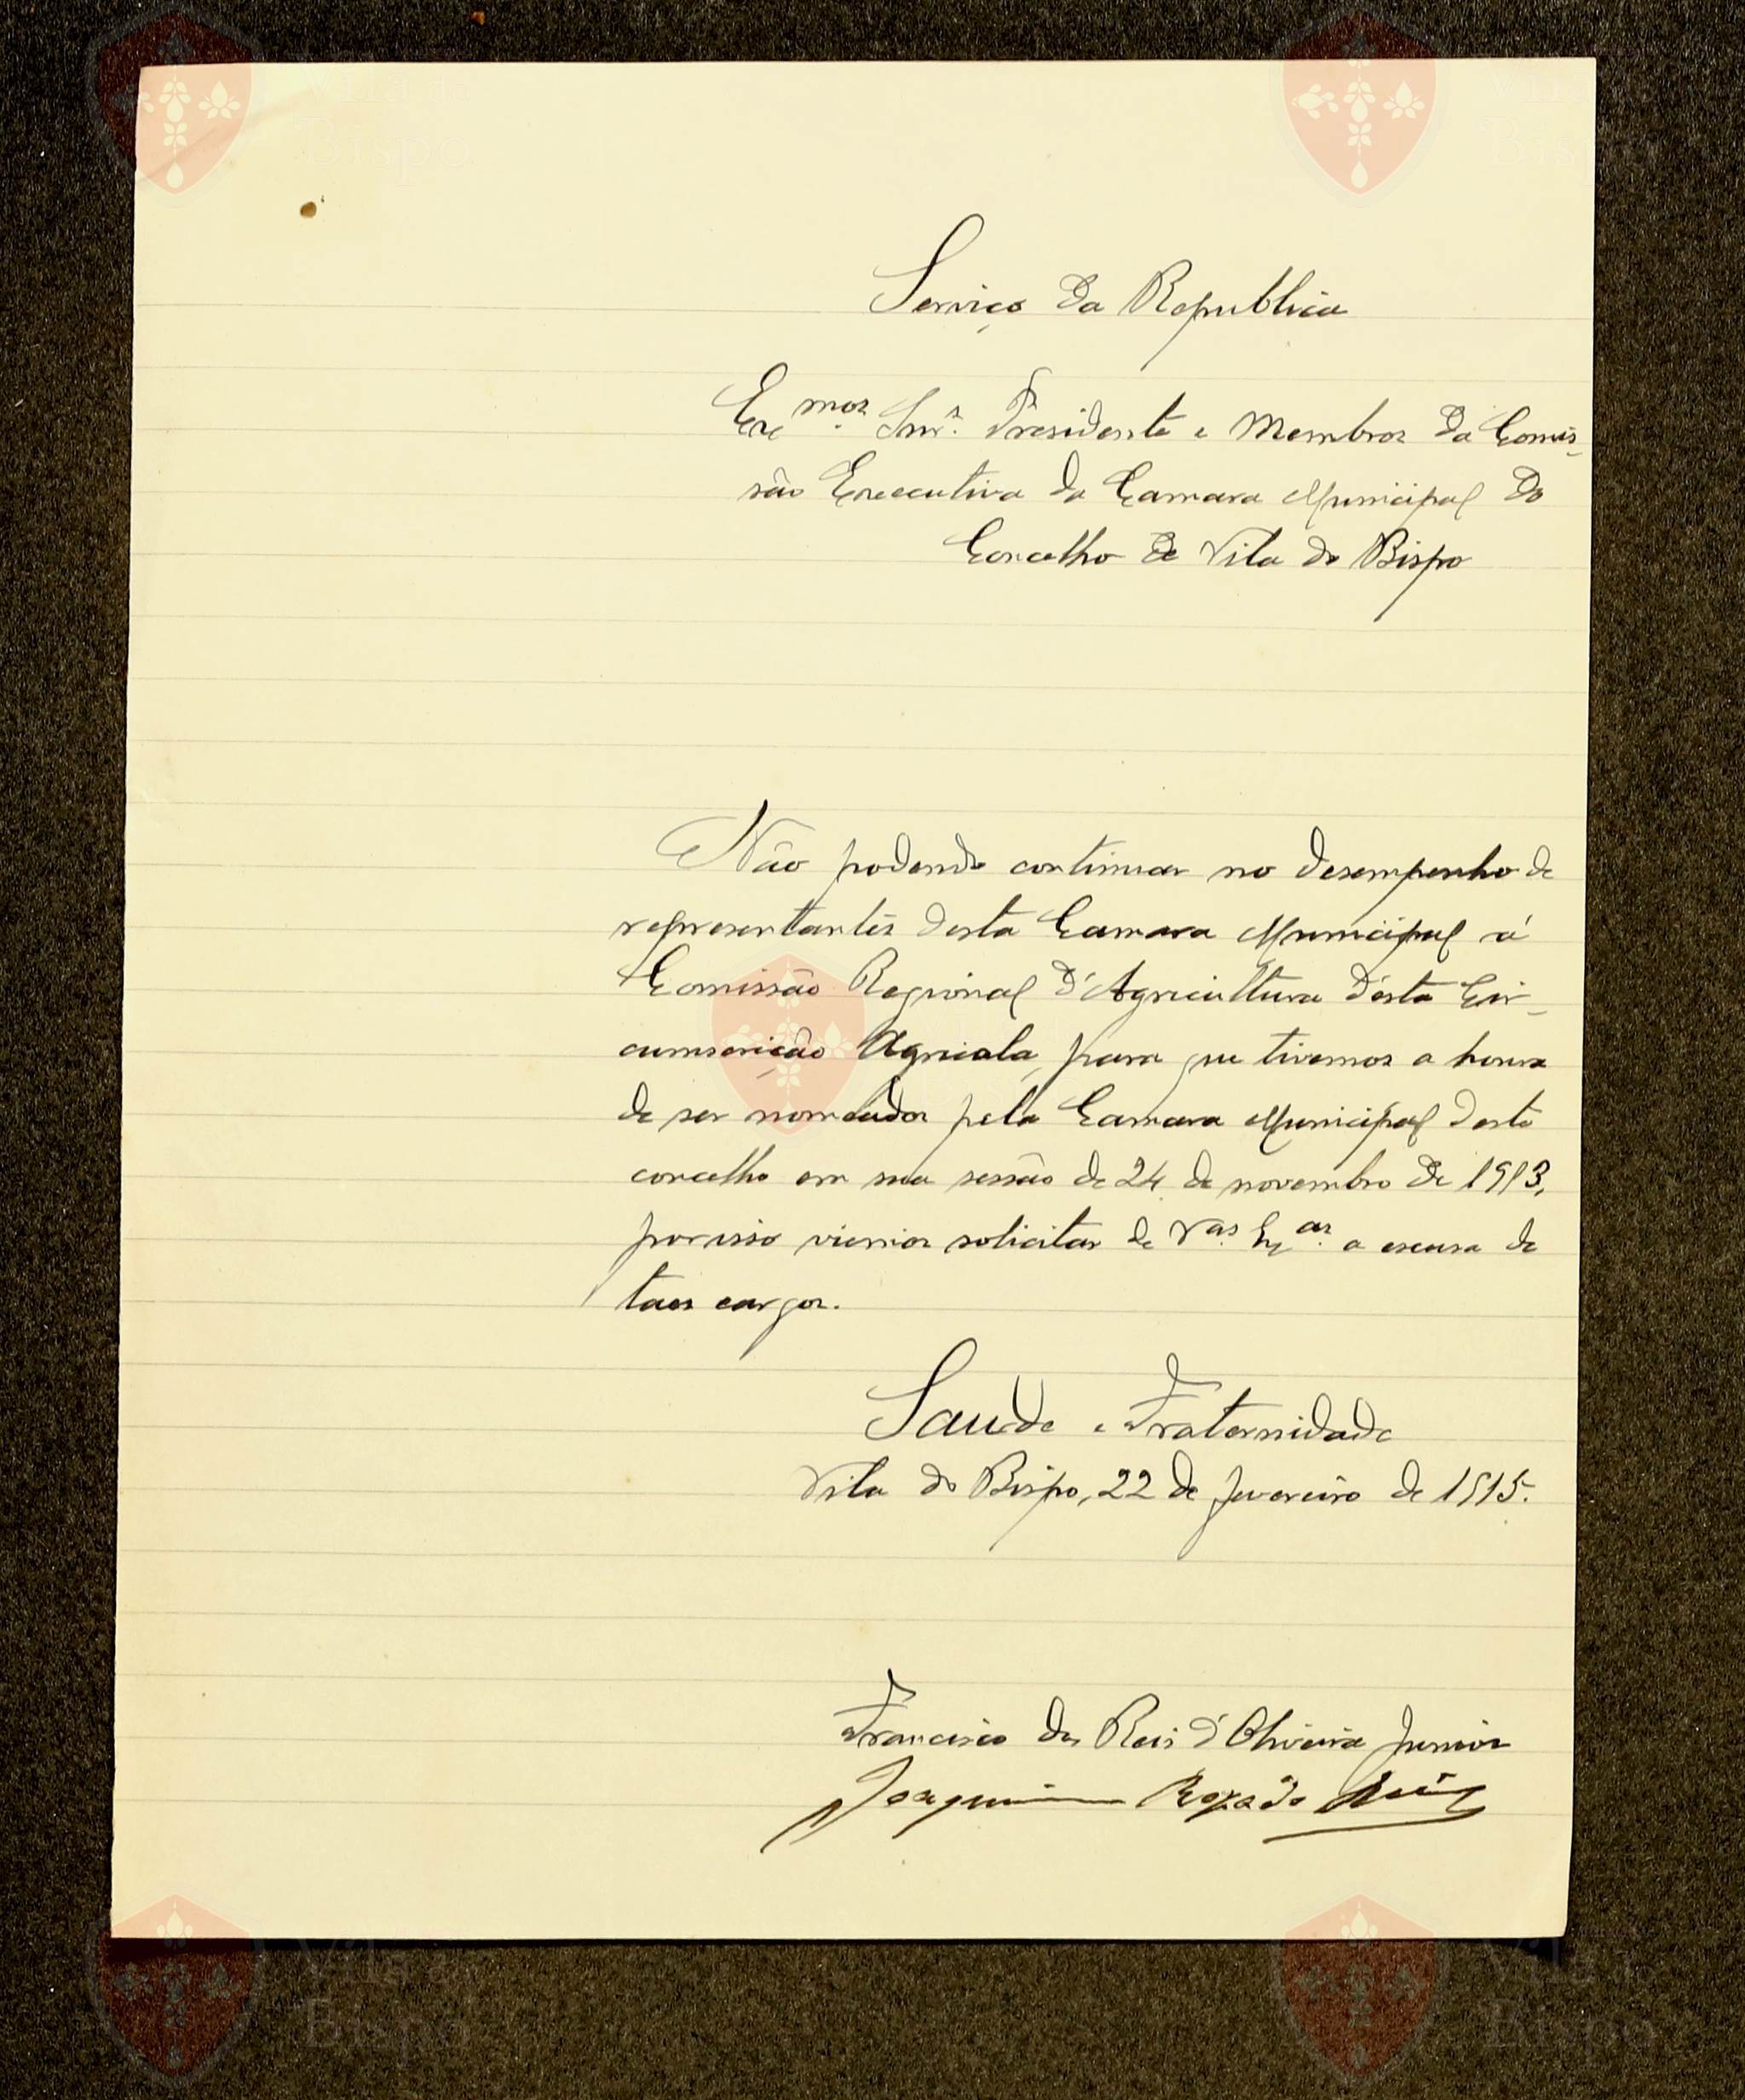 Serviço da Republica
Exc.mos Snrs. Presidente e Membros da Comis-
são Executiva da Camara Municipal do
Concelho de Vila do Bispo
Não podendo continuar no desempenho de
representantes desta Camara Municipal á
Comissão Regional d'Agricultura désta Cir-
cumscrição Agricola, para que tivemos a honra
de ser nomeados pela Camara Municipal deste
concelho em sua sessão de 24 de novembro de 1913,
porisso vimos solicitar de V.as Ex.as a escusa de
taes cargos.
Saude e Fraternidade
Vila do Bispo, 22 de Fevereiro de 1915.
Francisco dos Reis d'Oliveira Junior
Joaquim Rozado
Vila do
Bispo